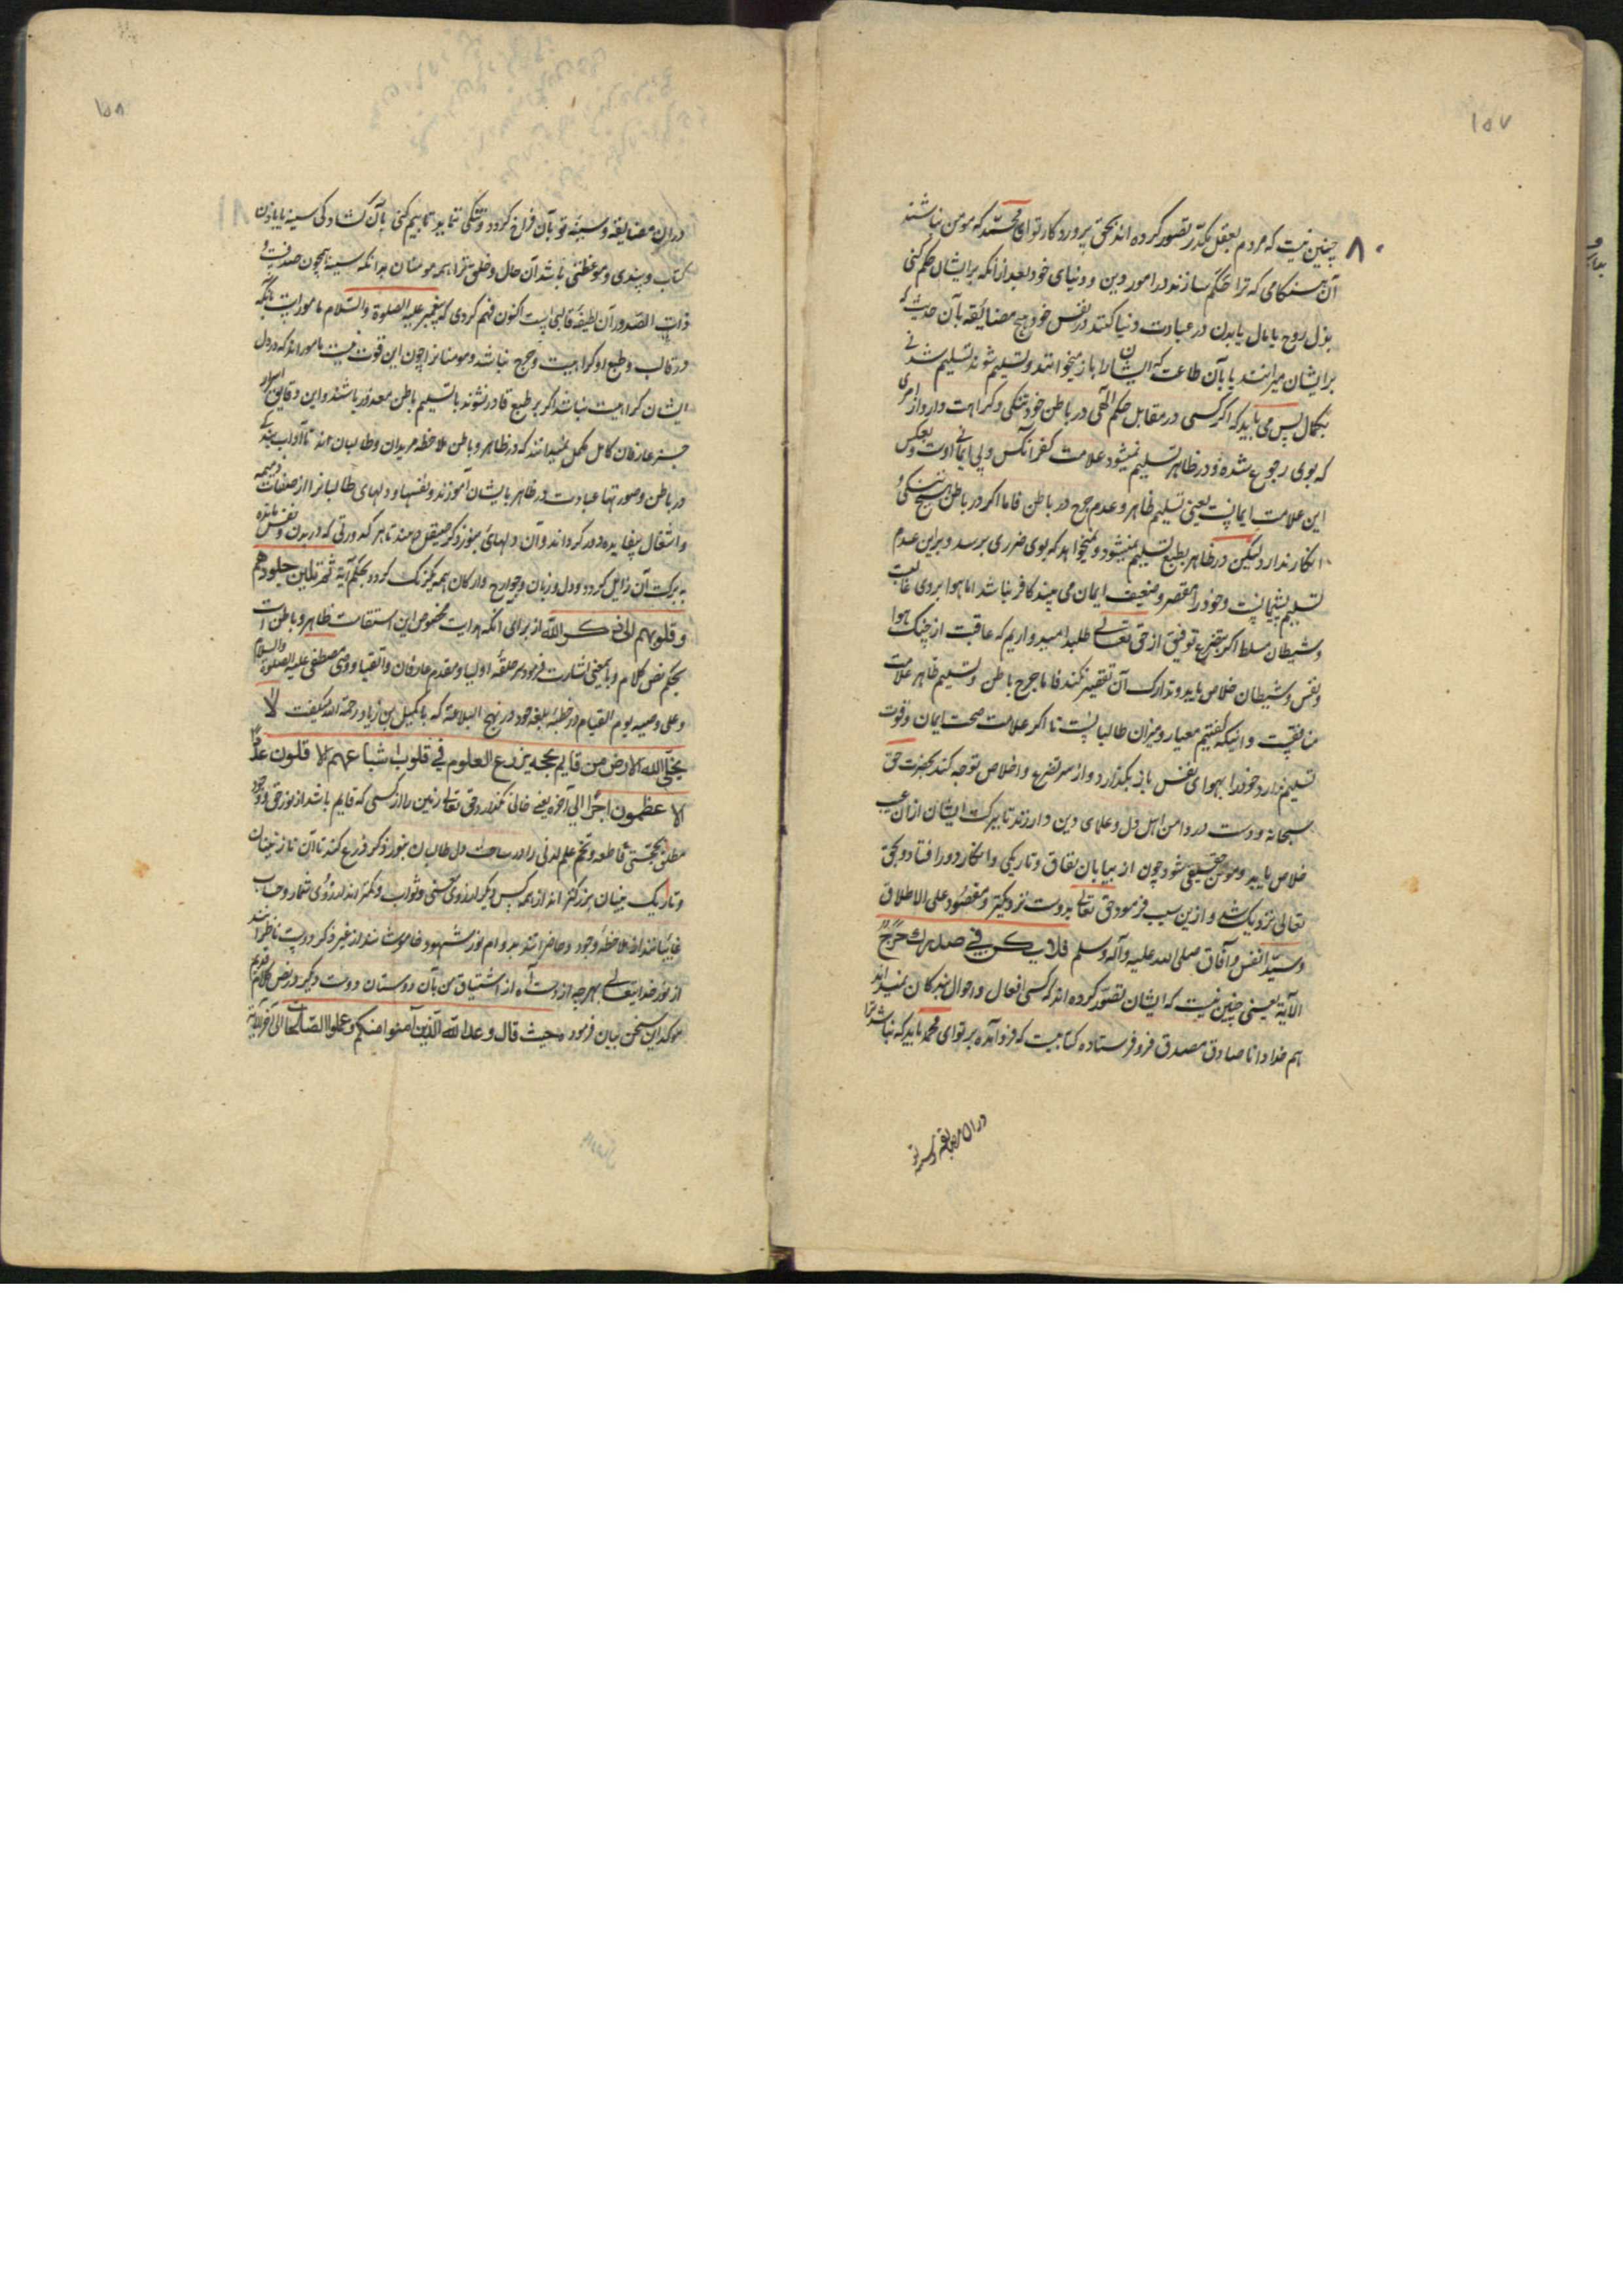 ۱۵۷
۸۰
چنین نیست که مردم بعقل مکدّر تصور کرده اند بحق پروردکار تو ای محمّد که مومن نباشند
آن هنکامی که ترا حکم سازند در امور دین و دنیای خود بعد از انکه بر ایشان حکم کنی
بذل روح یا مال یا بدن در عبادت و نیا کنند در نفس خود هیچ مضایقه بآن حدیث که
بر ایشان میرانند یا بآن طاعت که ایشان را باز میخوانند و تسلیم شوند تسلیم شدنی
بکمال پس می باید که اکر کسی در مقابل حکم الهی در باطن خود تنکی و کراهت دارد از امری
که بوی رجوع شده و در ظاهر تسلیم نمیشود علامت کفر آنکس و بی ایمانی اوست و بعکس
این علامت ایمانست یعنی تسلیم ظاهر و عدم حرج در باطن فاما اکر در باطن هیچ تنکی و
انکار ندارد لیکن در ظاهر بطبع تسلیم نمیشود و نمیخواهد که بوی ضرری برسد و بر این عدم
تسلیم پشیمانست و خود را مقصر و ضعیف ایمان می بیند کافر نباشد اما هوا بر وی غالبست
و شیطان مسلط اکر بتضرع توفیق از حق تعالی طلبد امیدواریم که عاقبت از چنک هوا
و نفس و شیطان خلاص یابد و تدارک آن تقصیر کند فاما حرج باطن و تسلیم ظاهر علامت
منافقیست و اینکه کفتیم معیار و میزان طالبانست تا اکر علامت صحت ایمان و قوت
تسلیم ندارد خود را بهوای نفس باز نکذارد و از سر تضرع و اخلاص توجه کند بحضرت حق
سبحانه و دست در دامن اهل دل و علمای دین دار زند تا ببرکت ایشان از ان عیب
خلاص یابد و مومن حقیقی شود چون از بیابان نفاق و تاریکی و انکار دور افتاد و بحق
تعالی نزدیک شد و ازین سبب فرمود حق تعالی بدوست نزدیکتر و مقصود علی الاطلاق
و سیّد انفس و آفاق صلی الله علیه و آله و سلم فلا یکن فی صدرک حرج
الآیة یعنی چنین نیست که ایشان تصوّر کرده اند که کسی افعال و احوال بندکان نمیداند
هم خدا دانا صادق مصدق فرو فرستاده کتابیست که فرو آمده بر تو ای محمد باید که نباشد ترا
در ان مضایقه و سینه تو
۱۵۸
در ان مضایقه و سینه تو بآن فراخ کردد و تنکی ننماید تا بیم کنی بآن کشادکی سینه یا بان
کتاب و پندی و موعظتی باشد آن حال و خلق مر همه مومنان بدانکه سینه همچون صدفیست و
ذات الصّدور آن لطیفه قالبی است اکنون فهم کردی که پیغمبر علیه الصلوة والسّلام مامورست بانکه
در قالب و طبع او کراهیت و حرج نباشد و مومنانرا چون این قوت نیست مامور اند که در دل
ایشان کراهیت نباشد اکر بر طبع قادر نشوند با تسلیم باطن معذور باشند و این دقایق اسرار
جز عارفان کامل مکمل نمیدانند که در ظاهر و باطن ملاحظه مریدان و طالبان اند تا آداب بندکی
در باطن و صورتها عبادت در ظاهر بایشان آموزند و نفسها و دلهای طالبانرا از صفات ذمیمه
و اشتغال بیفایده دور کردانند و آن دلهای بنور ذکر صیقل دهند تا هر کدورتی که در بدن و نفس مانده
به برکت آن زایل کردد و دل و زبان و جوارح و ارکان همه یکرنک کردد بحکم آیة ثم تلین جلودهم
و قلوبهم الی ذکر الله از برای انکه هدایت مخصوص این استقامت ظاهر و باطن است
بحکم نص کلام و باین معنی اشارت فرمود سر حلقه اولیا و مقدم عارفان و اتقیا و وصی مصطفی علیه الصلوة والسلام
و علی وصیه یوم القیام در خطبه بلیغه خود در نهج البلاغة که با کمیل بن زیاد رحمة الله میکفت لا
یخلی الله الارض من قایم بحجه یزرع العلوم فی قلوب اشباعهم الا قلون عددًا
الا عظمون اجرًا الی آخره یعنی خالی نکذارد حق تعالی زمین را از کسی که قایم باشد از نور حق و وجود
مطلق بحجتی قاطعه و تخم علم لدنی را در ساحت دل طالبان بنور ذکر زرع کند تا آن نازنینان
و تاریک بینان بزرکتر اند از همه کس دیکر از روی معنی و ثواب و کمتر اند از روی شمار و حساب
غایبانند از ملاحظه وجود و حاضرانند بدوام نور مشهود خاموشانند از غیر ذکر دوست ناظرانند
از نور خدایتعالی بهر چه از دست آه از اشتیاق من بآن دوستان دوست دیکر در نص کلام قدیم
موکد این سخن بیان فرمود حیث قال وعد الله الّذین آمنوا منکم و عملوا الصّالحات الی آخر الآیه